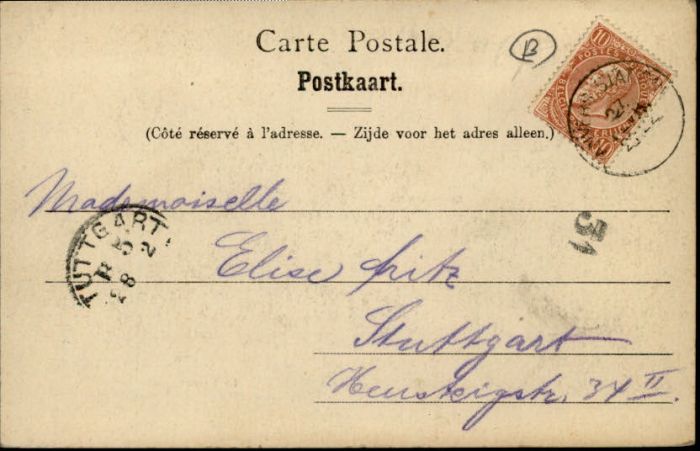 Carte Postale.
Postkaart.
(Côté réservé à l'adresse. — Zijde voor het adres alleen.)
B
10 POSTES 10
Mademoiselle
Elise Fritz
Stuttgart
Heusteigstr. 34 II.
31
TUTTGART
5
2
28